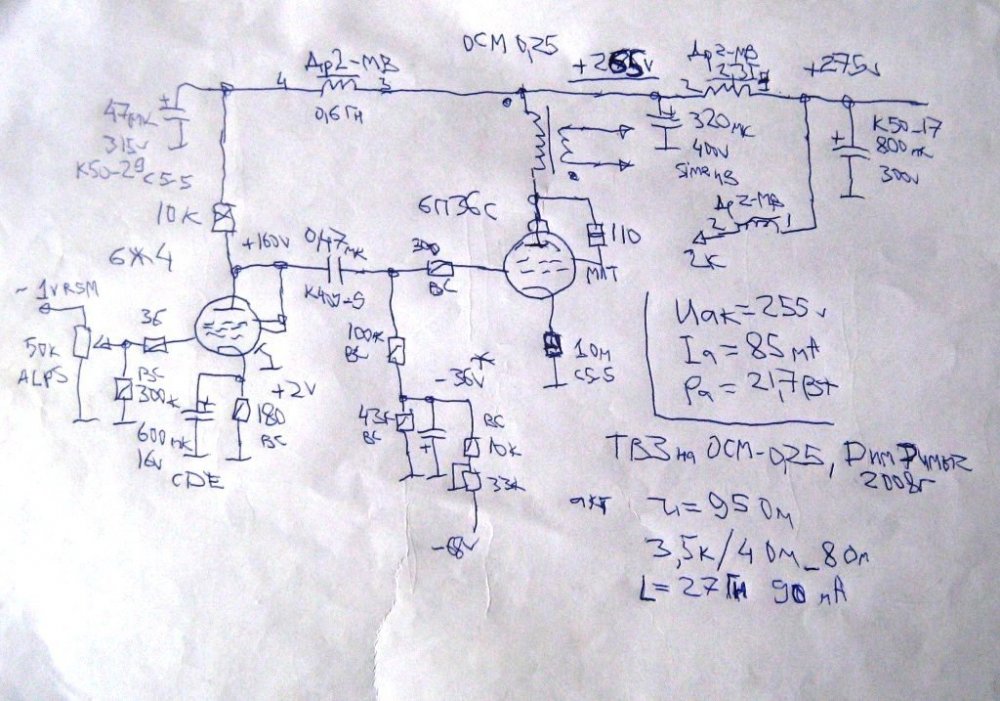 ОСМ 0,25
4 Др2-МВ 3
0,6Гн
+265v
Др2-МВ
2
+275v
47мк
315v
К50-29
С5-5
320мк
400v
К50-17
800мк
300v
Др2-МВ
2 1
2К
10К
6П36С
110
МЛТ
6Ж4
+160v
0,47мк
300
ВС
~1vRSM
50К
ALPS
36
ВС
300к
600мк
16v
CDE
+2v
180
ВС
100к
ВС
-36v*
43к
ВС
ВС
10К
33к
-68v
1Ом
С5-5
Uак=255v
Iа=85мА
Pа=21,7Вт
ТВЗ на ОСМ-0,25,
2008г
акт
r=95Ом
3,5к/4Ом_8Ом
L=27Гн 90мА